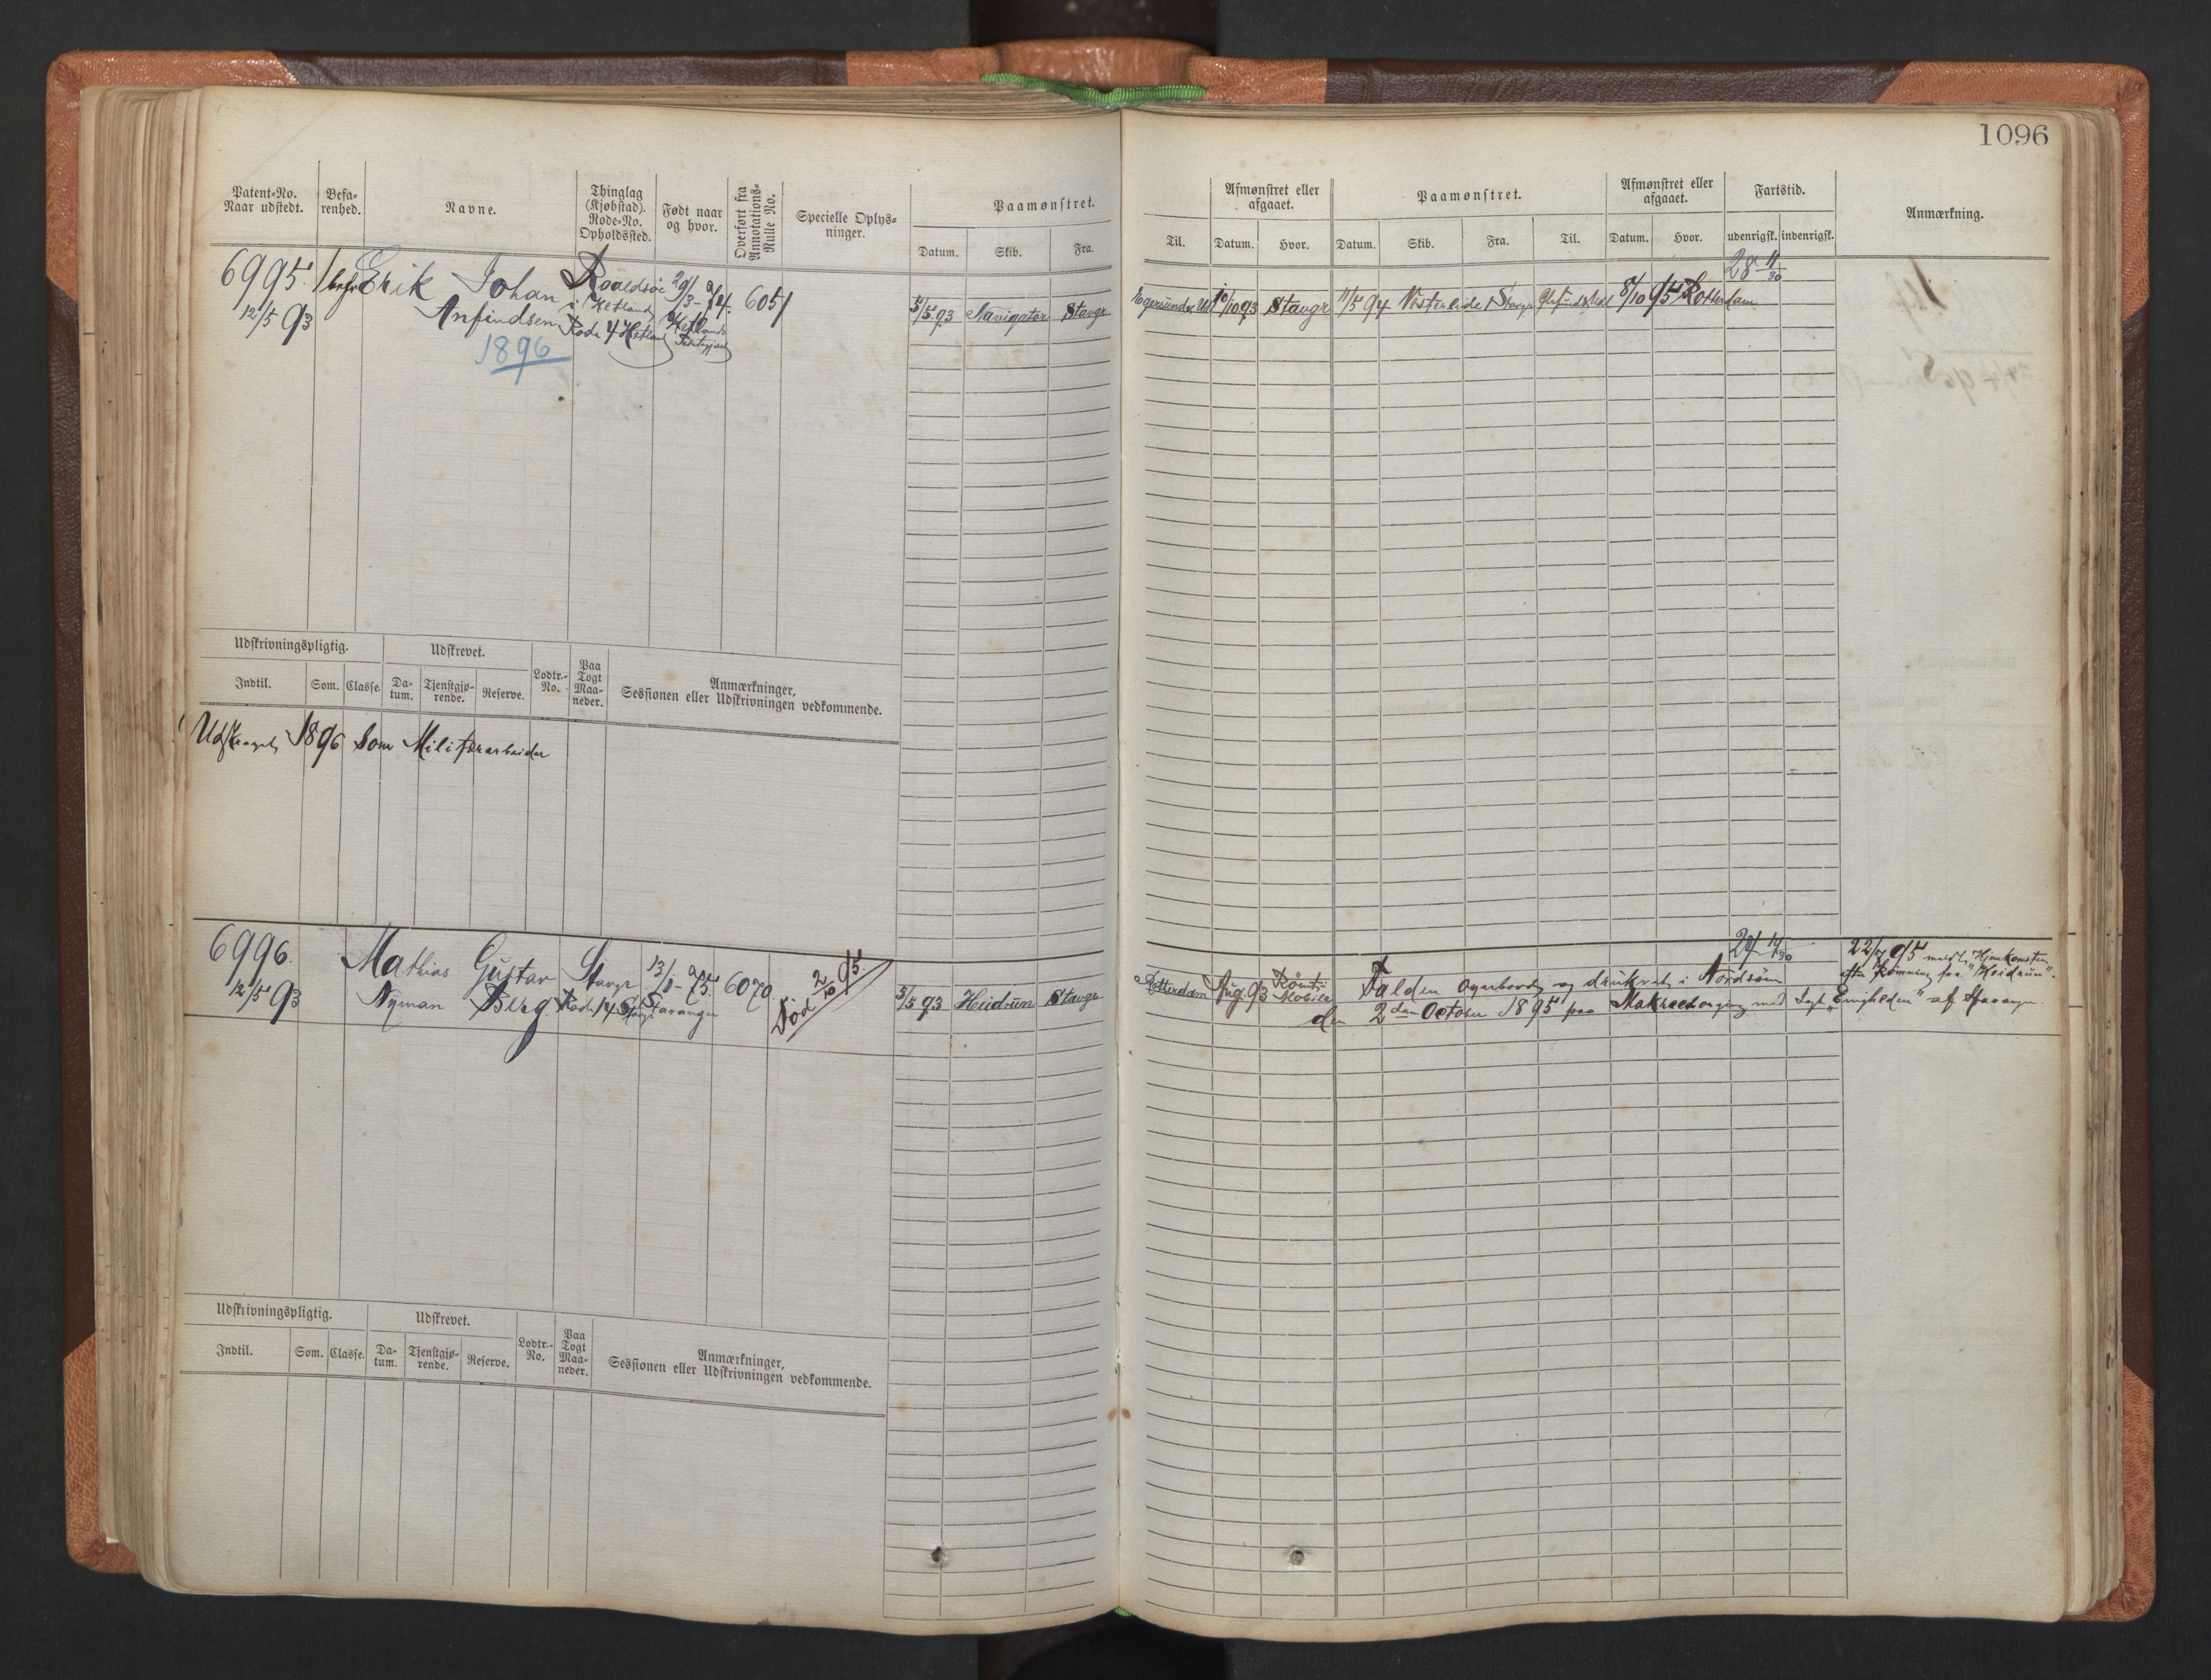 1096
Patent-No. Naar udstedt. Befa- renhed. Navne. Thinglag (Kjøbstad). Rode-No. Opholdssted. Født naar og hvor. Overført fra Annotations- Rulle No. Specielle Oplys- ninger. Paamønstret. Datum. Skib. Fra.
Til. Afmønstret eller afgaaet. Datum. Hvor. Paamønstret. Datum. Skib. Fra. Til. Afmønstret eller afgaaet. Datum. Hvor. Fartstid. udenrigsk. indenrigsk. Anmærkning.
6995. Erik Johan Roaldsöe 29/3- 74. 6051 28 11/30
12/5 93 Anfindsen i Hetland Rode 4 Hetland 5/5 93 Navigator Stavgr 10/10 93 Stavgr 11/5 94 8/10 95 Rotterdam
1896
Udskrivningspligtig. Udskrevet. Lodtr.- No. Paa Togt Maa- neder. Anmærkninger, Sessionen eller Udskrivningen vedkommende.
Indtil. Som. Classe. Da- tum. Tjenstgjø- rende. Reserve.
1896 som Militærarbeider
6996. Mathias Gustav Stavgr 13/8- 75. 6070 Död 2/10 95
12/5 93 Nyman Berg Rode 14 Stavanger 5/5 93 Heidrun Stavgr Rotterdam Aug. 93
Falden overbord og druknet i Nordsöen
den 2den October 1895 paa med af Stavanger
22/ 95 Hjemkomsten
efter Römning fra "Heidrun".
Udskrivningspligtig. Udskrevet. Lodtr.- No. Paa Togt Maa- neder. Anmærkninger, Sessionen eller Udskrivningen vedkommende.
Indtil. Som. Classe. Da- tum. Tjenstgjø- rende. Reserve.